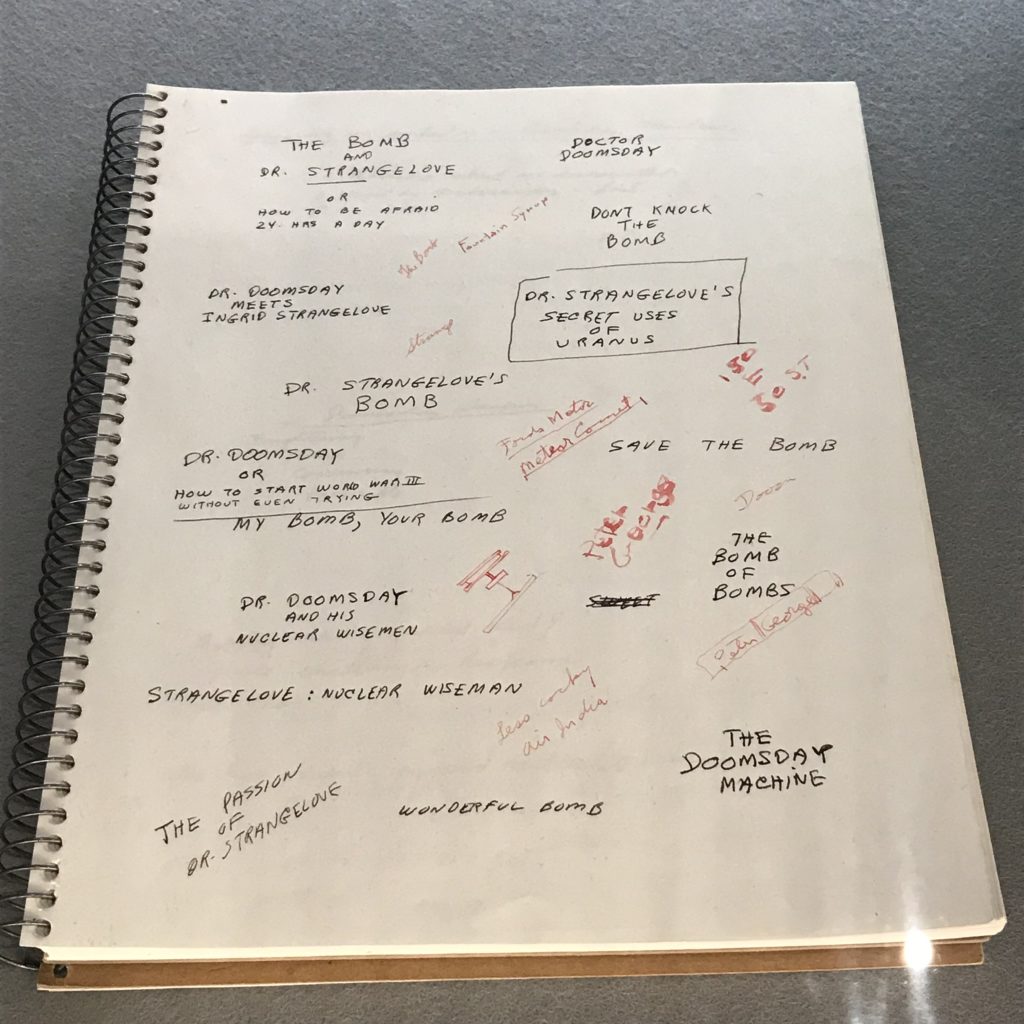 THE BOMB
AND
DR. STRANGELOVE
OR
HOW TO BE AFRAID
24 HRS A DAY
DOCTOR
DOOMSDAY
DONT KNOCK
THE
BOMB
The Bomb
Fountain Syrup
DR. DOOMSDAY
MEETS
INGRID STRANGELOVE
DR. STRANGELOVE'S
SECRET USES
OF
URANUS
Strange
DR. STRANGELOVE'S
BOMB
Fords Motor
Meteor Comet
SAVE THE BOMB
DR. DOOMSDAY
OR
HOW TO START WORLD WAR III
WITHOUT EVEN TRYING
MY BOMB, YOUR BOMB
PETER
GEORGE
THE
BOMB
OF
BOMBS
DR. DOOMSDAY
AND HIS
NUCLEAR WISEMEN
Peter George
STRANGELOVE : NUCLEAR WISEMAN
Less cocky
air India
THE
DOOMSDAY
MACHINE
THE PASSION
OF
DR. STRANGELOVE
WONDERFUL BOMB